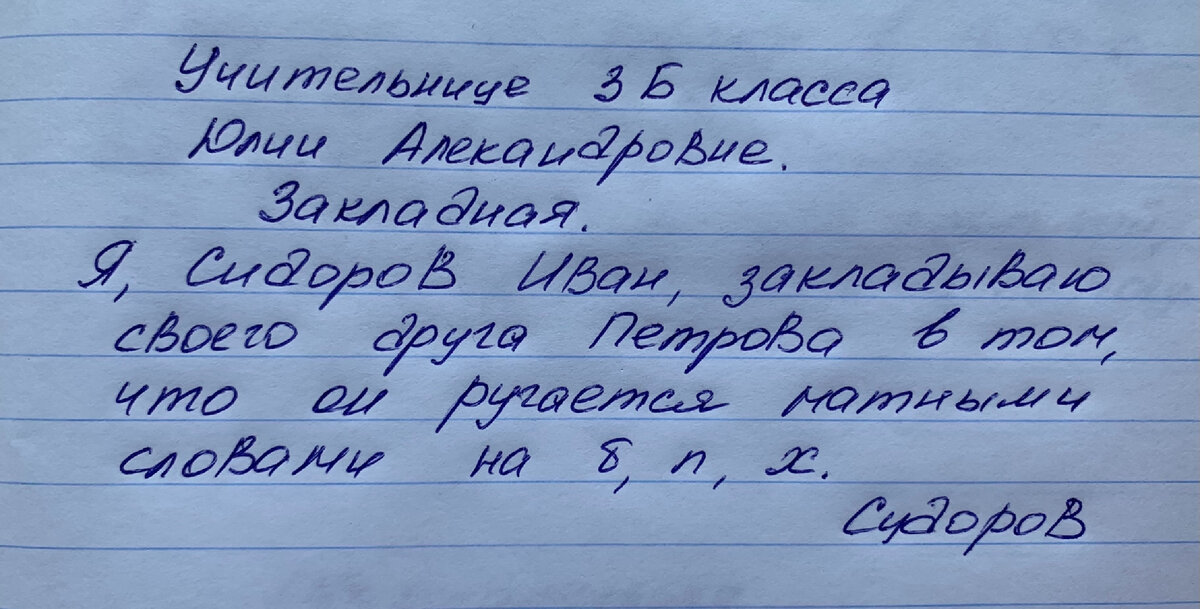 Учительнице 3 Б класса
Юлии Александровне.
Закладная.
Я, Сидоров Иван, закладываю
своего друга Петрова в том,
что он ругается матными
словами на б, п, х.
Сидоров